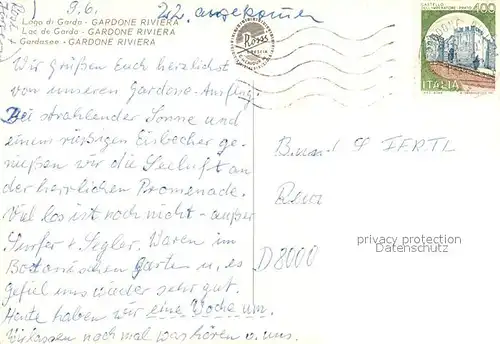 9.6.
22. angekommen
Lago di Garda - GARDONE RIVIERA
Lac de Garda - GARDONE RIVIERA
Gardasee - GARDONE RIVIERA
Wir grüßen Euch herzlichst
von unserem Gardone-Ausflug.
Bei strahlender Sonne und
einem riesigen Eisbecher ge-
nießen wir die Seeluft an
der herrlichen Promenade.
Viel los ist noch nicht - außer
Surfer + Segler. Waren im
Botanischen Garten u. es
gefiel uns wieder sehr gut.
Heute haben wir eine Woche um.
Wir lassen noch mal was hören v. uns.
CASTELLO
400
ITALIA
FERTL
D 8000
privacy protection
Datenschutz